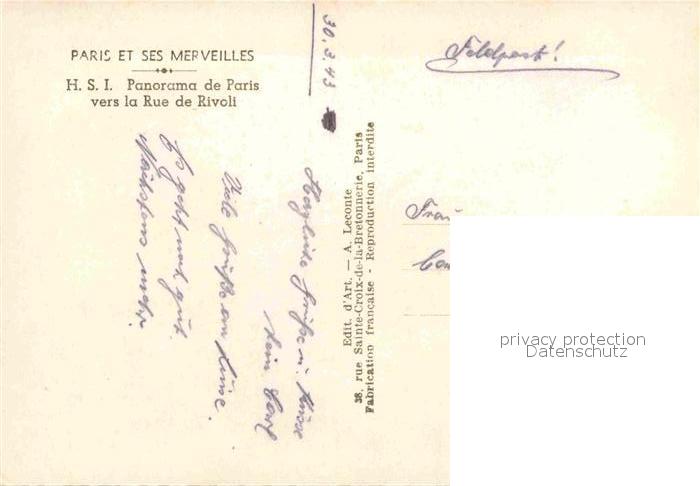 PARIS ET SES MERVEILLES
H. S. I. Panorama de Paris
vers la Rue de Rivoli
30.3.43
Herzliche Grüße u. Küsse
Dein Carl
Viele Grüße an
Es geht noch gut.
Nächstens mehr.
Edit. d'Art. — A. Leconte
38, rue Sainte-Croix-de-la-Bretonnerie, Paris
Fabrication française - Reproduction interdite
Feldpost!
Frau
privacy protection
Datenschutz